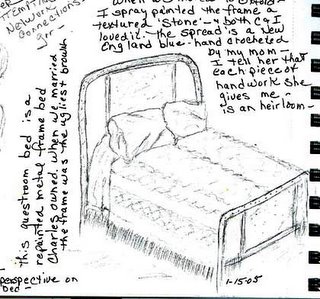 Network
Connections
I spray painted the frame a
textured 'stone' - & both C & I
loved it. the spread is a New
England blue - hand crocheted
by my mom -
I tell her that
each piece of
handwork she
gives me -
is an heirloom -
this guestroom bed is a
repainted metal-frame bed
Charles owned. when we married
the frame was the ugliest brown
perspective on
bed -
1-15-05